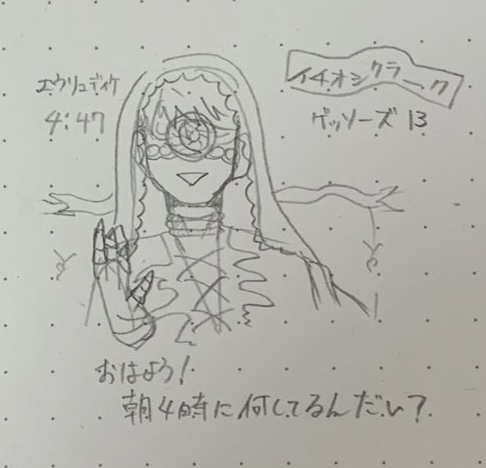 エウリュディケ
4:47
イチオシクラーク
ゲッソーズ 13
おはよう!
朝4時に何してるんだい?